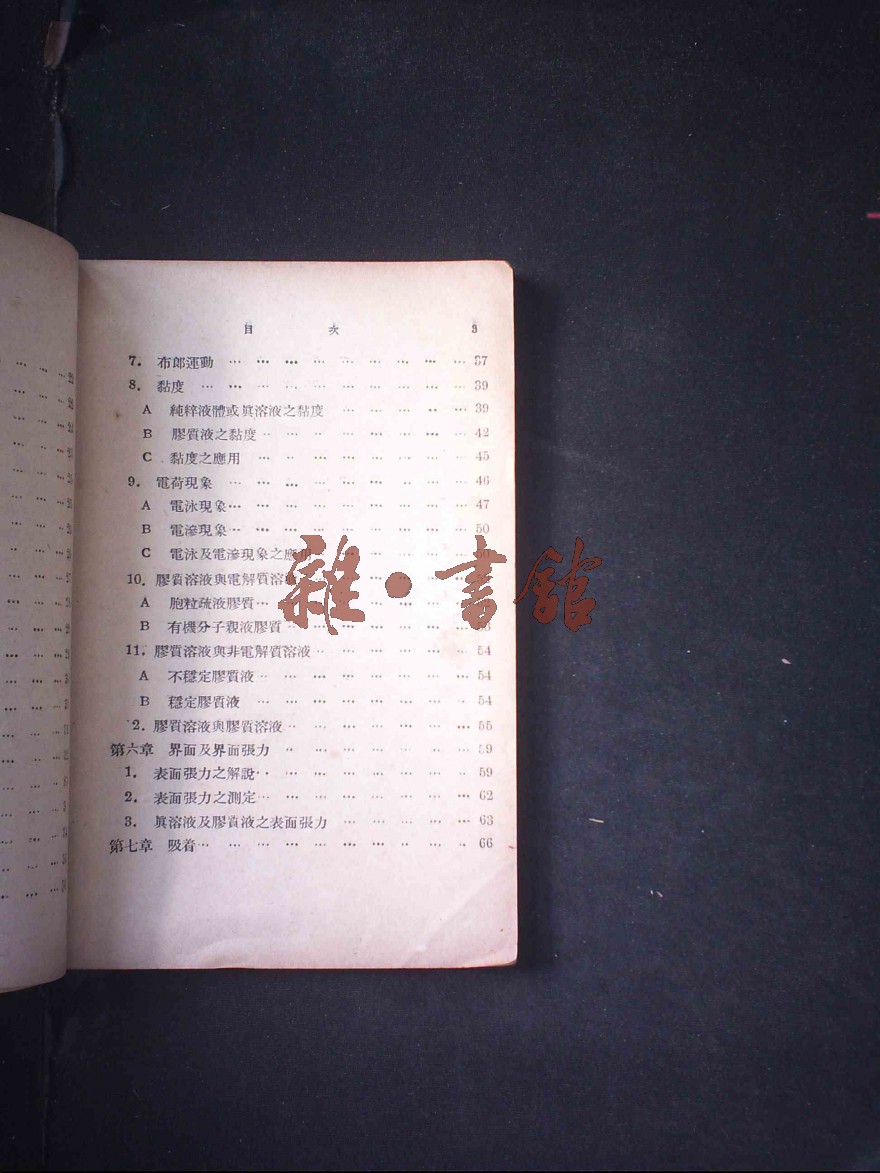 目 次 3
7. 布郎運動 … … … … … … … … … 37
8. 黏度 … … … … … … … … … … 39
A 純粹液體或眞溶液之黏度 … … … … … 39
B 膠質液之黏度 … … … … … … … … 42
C 黏度之應用 … … … … … … … … 45
9. 電荷現象 … … … … … … … … … 46
A 電泳現象 … … … … … … … … … 47
B 電滲現象 … … … … … … … … … 50
C 電泳及電滲現象之應用
10. 膠質溶液與電解質溶液
A 胞粒疏液膠質
B 有機分子親液膠質
11. 膠質溶液與非電解質溶液 … … … … … … 54
A 不穩定膠質液 … … … … … … … … 54
B 穩定膠質液 … … … … … … … … 54
2. 膠質溶液與膠質溶液 … … … … … … … 55
第六章 界面及界面張力 … … … … … … … 59
1. 表面張力之解說 … … … … … … … … 59
2. 表面張力之測定 … … … … … … … … 62
3. 眞溶液及膠質液之表面張力 … … … … … 63
第七章 吸着 … … … … … … … … … … 66
雜·書館